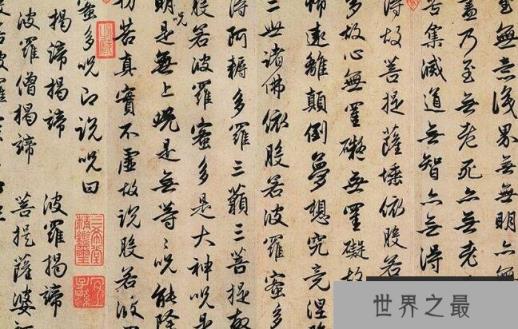 至無意識界無無明亦
盡乃至無老死亦無老
苦集滅道無智亦無得
得故菩提薩埵依般若
多故心無罣礙無罣礙故
怖遠離顛倒夢想究竟涅
三世諸佛依般若波羅蜜多
得阿耨多羅三藐三菩提故
般若波羅蜜多是大神咒
明咒是無上咒是無等等咒能除
切苦真實不虛故說般若波
蜜多咒即說咒曰
揭諦揭諦 波羅揭諦
波羅僧揭諦 菩提薩婆訶
三希堂精鑑璽
宜子孫
世界之最